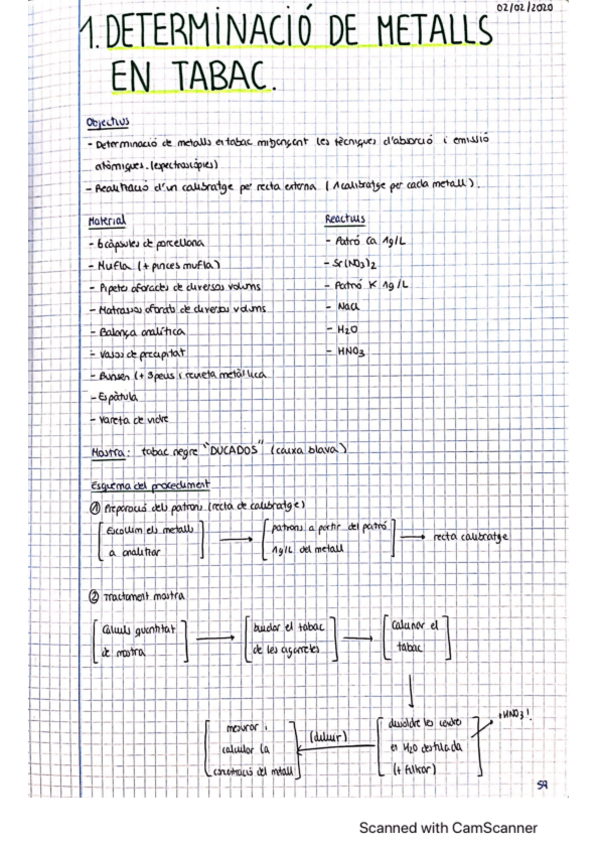 02/02/2020
1. DETERMINACIÓ DE METALLS
EN TABAC.
Objectius
- Determinació de metalls en tabac mitjançant les tècniques d'absorció i emissió
atòmiques. (espectroscòpies)
- Realització d'un calibratge per recta externa (1 calibratge per cada metall).
Material
- 6 càpsules de porcellana
- Mufla (+ pinces mufla)
- Pipetes aforades de diversos volums
- Matrassos aforats de diversos volums
- Balança analítica
- Vasos de precipitat
- Bunsen (+ 3peus i reixeta metàl·lica
- Espàtula
- Vareta de vidre
Reactius
- Patró Ca 1g/L
- Sr(NO3)2
- Patró K 1g/L
- NaCl
- H2O
- HNO3
Mostra: tabac negre "DUCADOS" (caixa blava)
Esquema del procediment
① Preparació dels patrons (recta de calibratge)
Escollim els metalls
a analitzar
patrons a partir del patró
1g/L del metall
recta calibratge
② Tractament mostra
Càlculs quantitat
de mostra
buidar el tabac
de les cigarretes
Calcinar el
tabac
+HNO3!
dissoldre les cendres
en H2O destil·lada
(+ filtrar)
(diluir)
mesurar i
calcular la
concentració del metall
Scanned with CamScanner